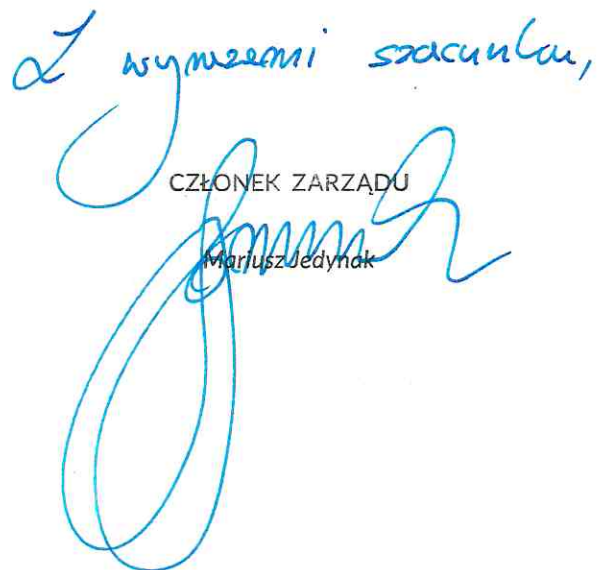 Z wyrazami szacunku,
CZŁONEK ZARZĄDU
Mariusz Jedynak